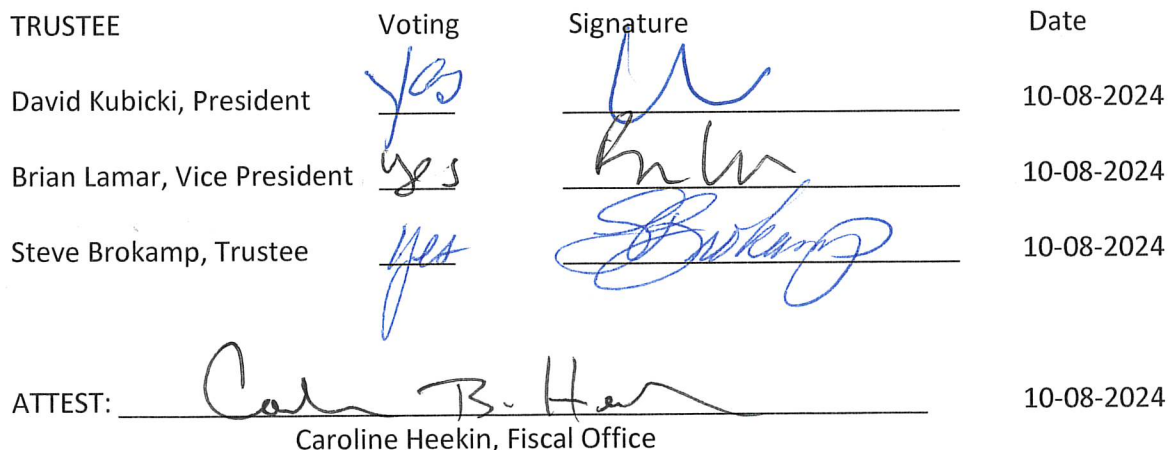 TRUSTEE Voting Signature Date
David Kubicki, President yes 10-08-2024
Brian Lamar, Vice President yes 10-08-2024
Steve Brokamp, Trustee yes SBrokamp 10-08-2024
ATTEST: B. 10-08-2024
Caroline Heekin, Fiscal Office